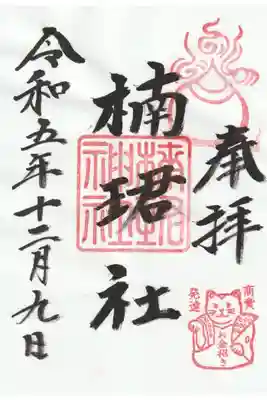 奉拝
楠珺社
楠珺
神社
令和五年十二月九日
発達